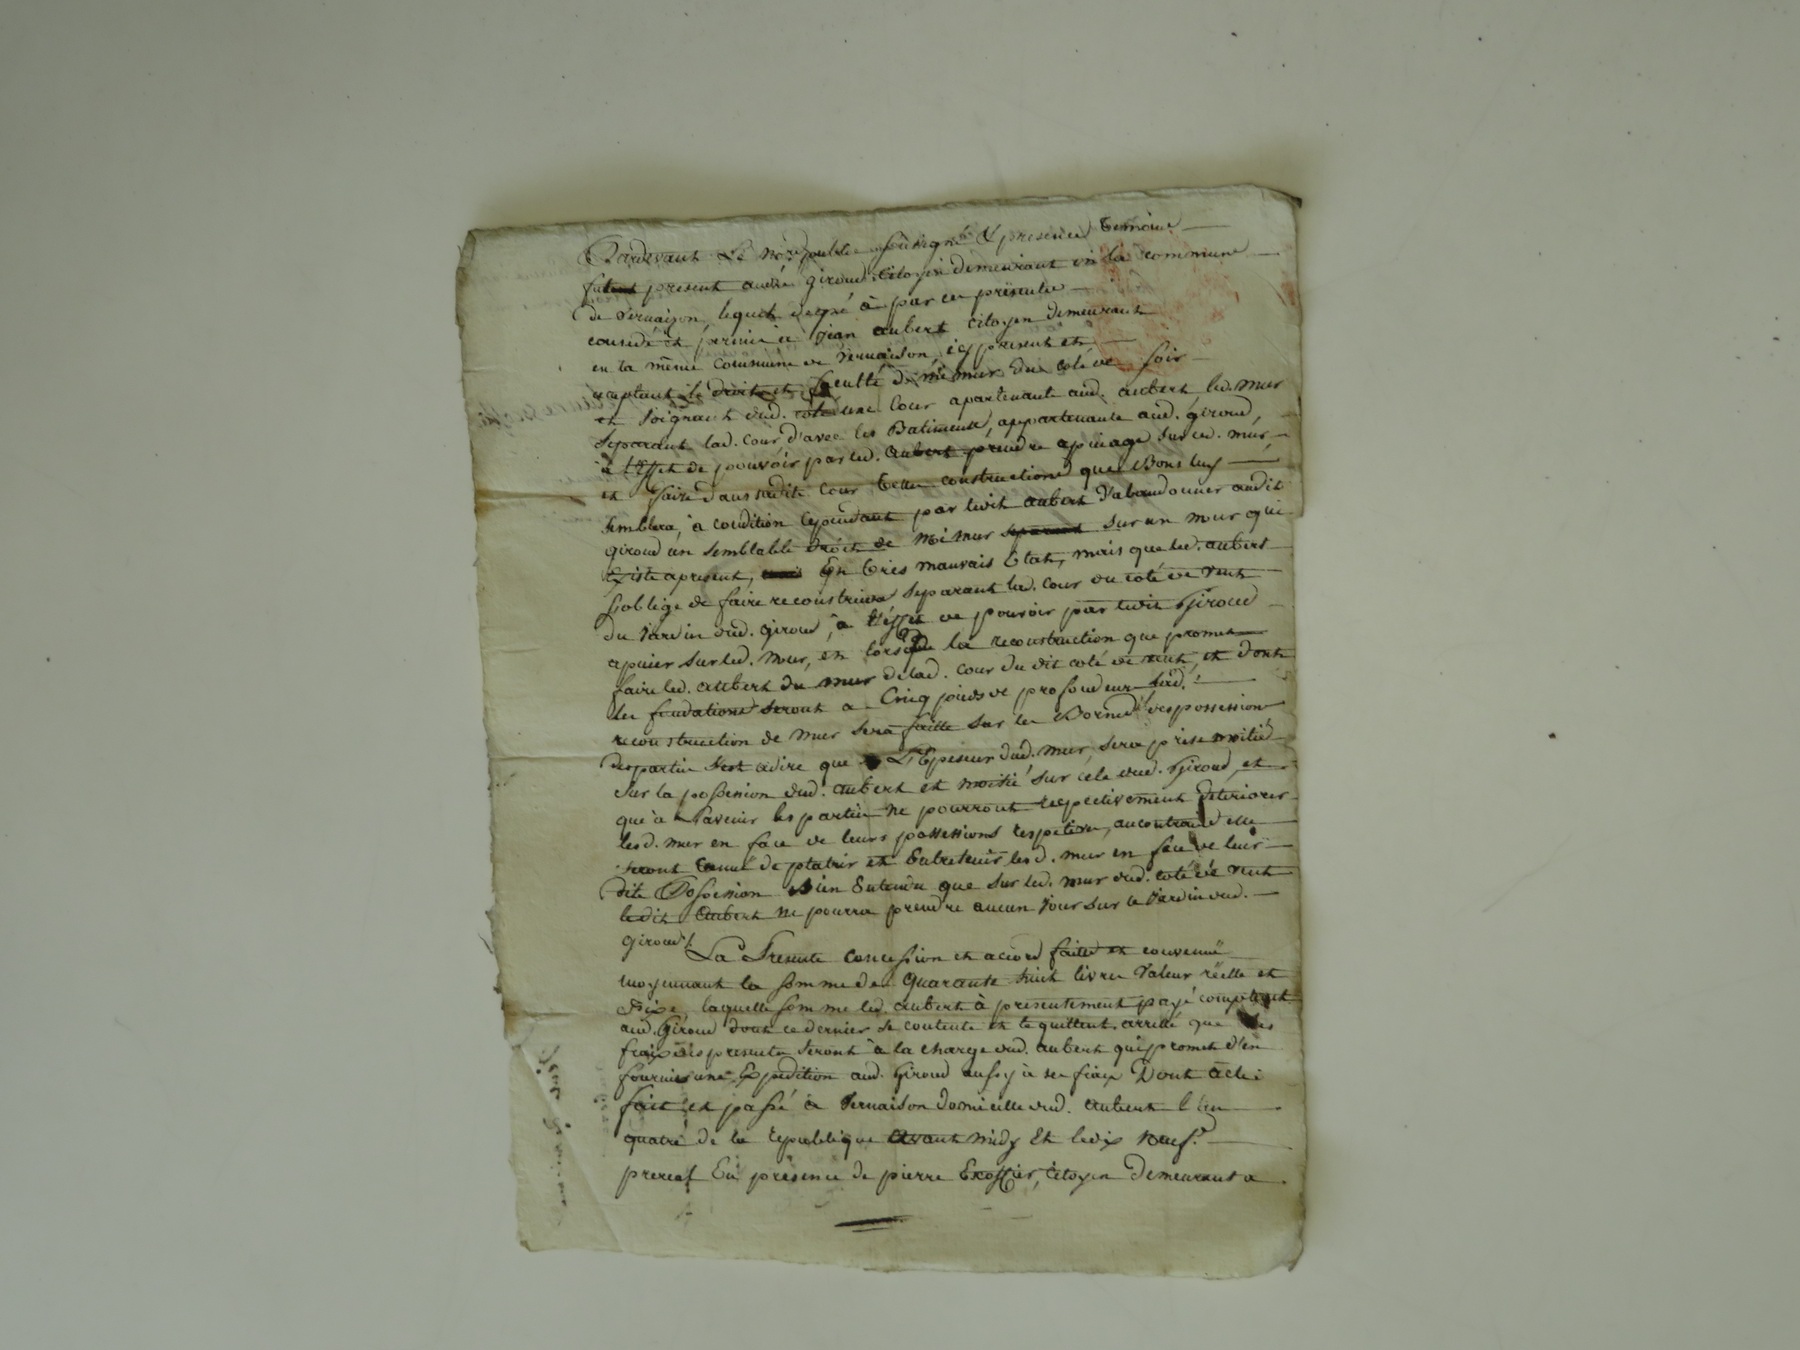 Pardevant Le no.re public soussigné & presence temoins
fut present andré giroud citoyen demeurant en la commune
de vernaison, lequel de gré à par ces presentes
concédé et permis à jean aubert citoyen demeurant
en la même commune de vernaison, icy present et
acceptant le droit et faculté de mi mur du coté de soir
et joignant dud. coté une Cour apartenante aud. aubert, led. mur
separant lad. cour d'avec les Batiments, appartenants aud. giroud,
à l'effet de pouvoir par led. aubert prendre apuiage sur led. mur
et faire dans sadite cour telle construction que Bons luy
semblera, à condition cependant par ledit aubert d'abandonner audit
giroud un semblable droit de mi mur sur un mur qui
Existe apresent, En très mauvais Etat, mais que led. aubert
s'oblige de faire reconstruire separant lad. cour du coté de vent
du jardin dud. giroud, à l'effet de pouvoir par ledit Giroud
apuier sur led. mur, en lors de la reconstruction que promet
faire led. aubert du mur de lad. cour du dit coté de vent, et dont
les fondations seront a Cinq pieds de profondeur lad.
reconstruction de mur sera faitte sur les Bornes des possessions
des parties c'est adire que L'Epesseur dud. mur, sera prise moitié
sur la possession dud. aubert et moitié sur cele dud. Giroud, et
que à l'avenir les parties ne pourront respectivement deteriorer
lesd. mur en face de leurs possessions respetives, au contraire elles
seront tenues de platrir et Entretenir lesd. mur en face de leur
dite Possession Bien Entendu que sur led. mur dud. coté de vent
ledit Aubert ne pourra prendre aucun jour sur le jardin dud.
giroud.
La Presente concession et acord faite et convenue
moyennant la somme de Quarante huit livres valeur réelle et
fixe, laquelle somme led. aubert à presentement payé comptant
aud. Giroud dont ce dernier se contente et le quittent. arreté que les
fraix des presentes seront à la charge dud. aubert qui promet d'en
fournir une Expedition aud. Giroud aussy à ses fraix Dont acte
fait et passé à vernaison domicille dud. aubert l'an
quatre de la republique avant midy Et le dix neuf
prereal En présence de pierre citoyen demeurant a